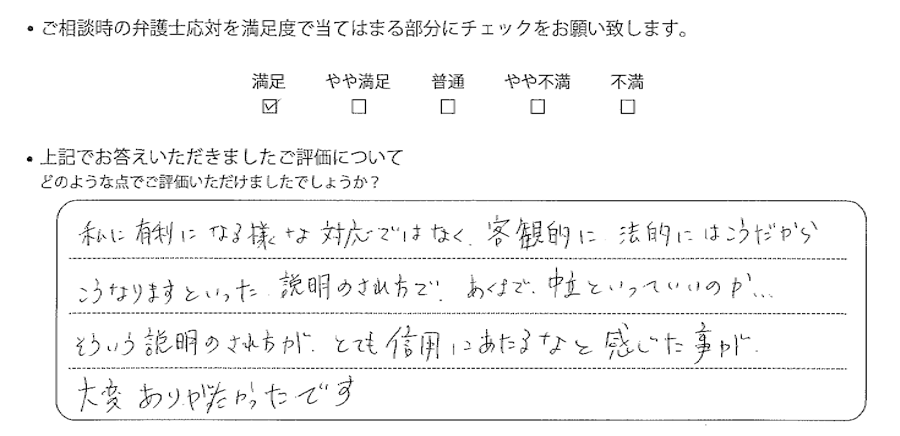 ・ご相談時の弁護士応対を満足度で当てはまる部分にチェックをお願い致します。
満足 やや満足 普通 やや不満 不満
☑ ☐ ☐ ☐ ☐
・上記でお答えいただきましたご評価について
どのような点でご評価いただけましたでしょうか？
私に有利になる様な対応ではなく、客観的に、法的にはこうだから
こうなりますといった、説明のされ方で、あくまで、中立といっていいのか…
そういう説明のされ方が、とても信用にあたるなと感じた事が、
大変ありがたかったです